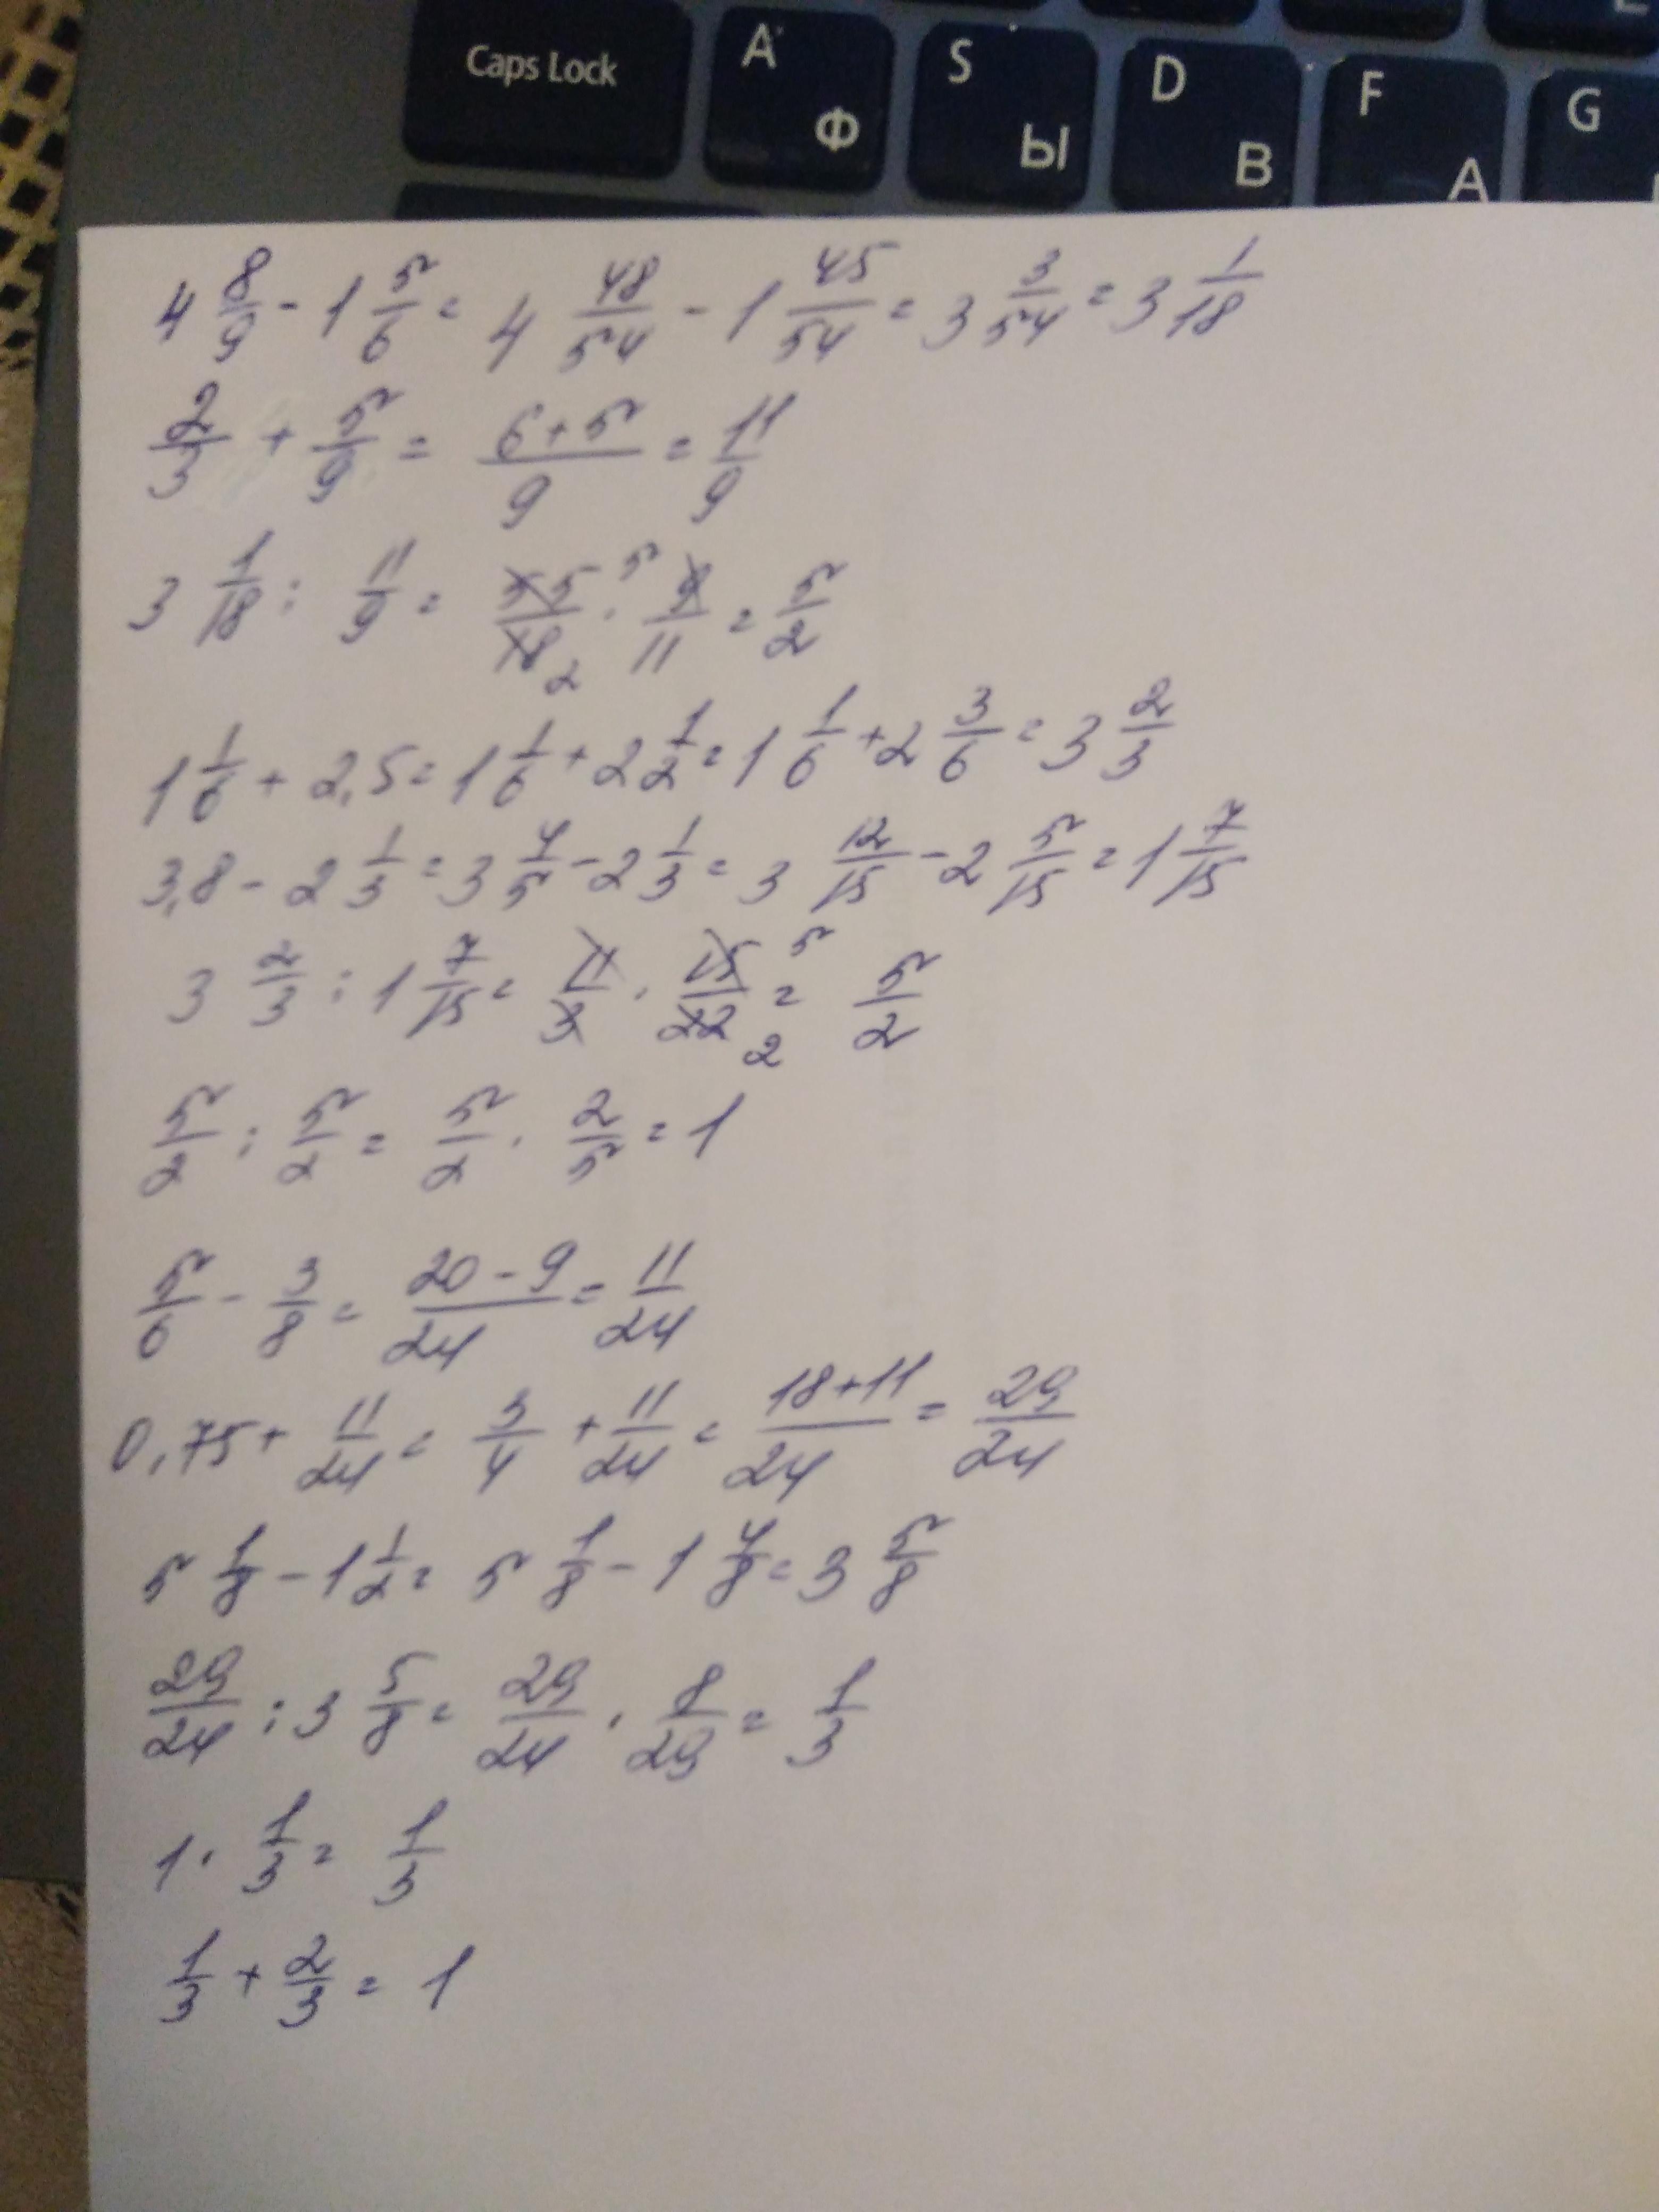 Caps Lock A Ф S Ы D В F А G
4 8/9 - 1 5/6 = 4 48/54 - 1 45/54 = 3 3/54 = 3 1/18
2/3 + 5/9 = (6+5)/9 = 11/9
3 1/18 : 11/9 = 55/18 5 2 · 9/11 = 5/2
1 1/6 + 2,5 = 1 1/6 + 2 1/2 = 1 1/6 + 2 3/6 = 3 2/3
3,8 - 2 1/3 = 3 4/5 - 2 1/3 = 3 12/15 - 2 5/15 = 1 7/15
3 2/3 : 1 7/15 = 11/3 · 15/22 5 2 = 5/2
5/2 : 5/2 = 5/2 · 2/5 = 1
5/6 - 3/8 = (20-9)/24 = 11/24
0,75 + 11/24 = 3/4 + 11/24 = (18+11)/24 = 29/24
5 1/8 - 1 1/2 = 5 1/8 - 1 4/8 = 3 5/8
29/24 : 3 5/8 = 29/24 · 8/29 = 1/3
1 · 1/3 = 1/3
1/3 + 2/3 = 1